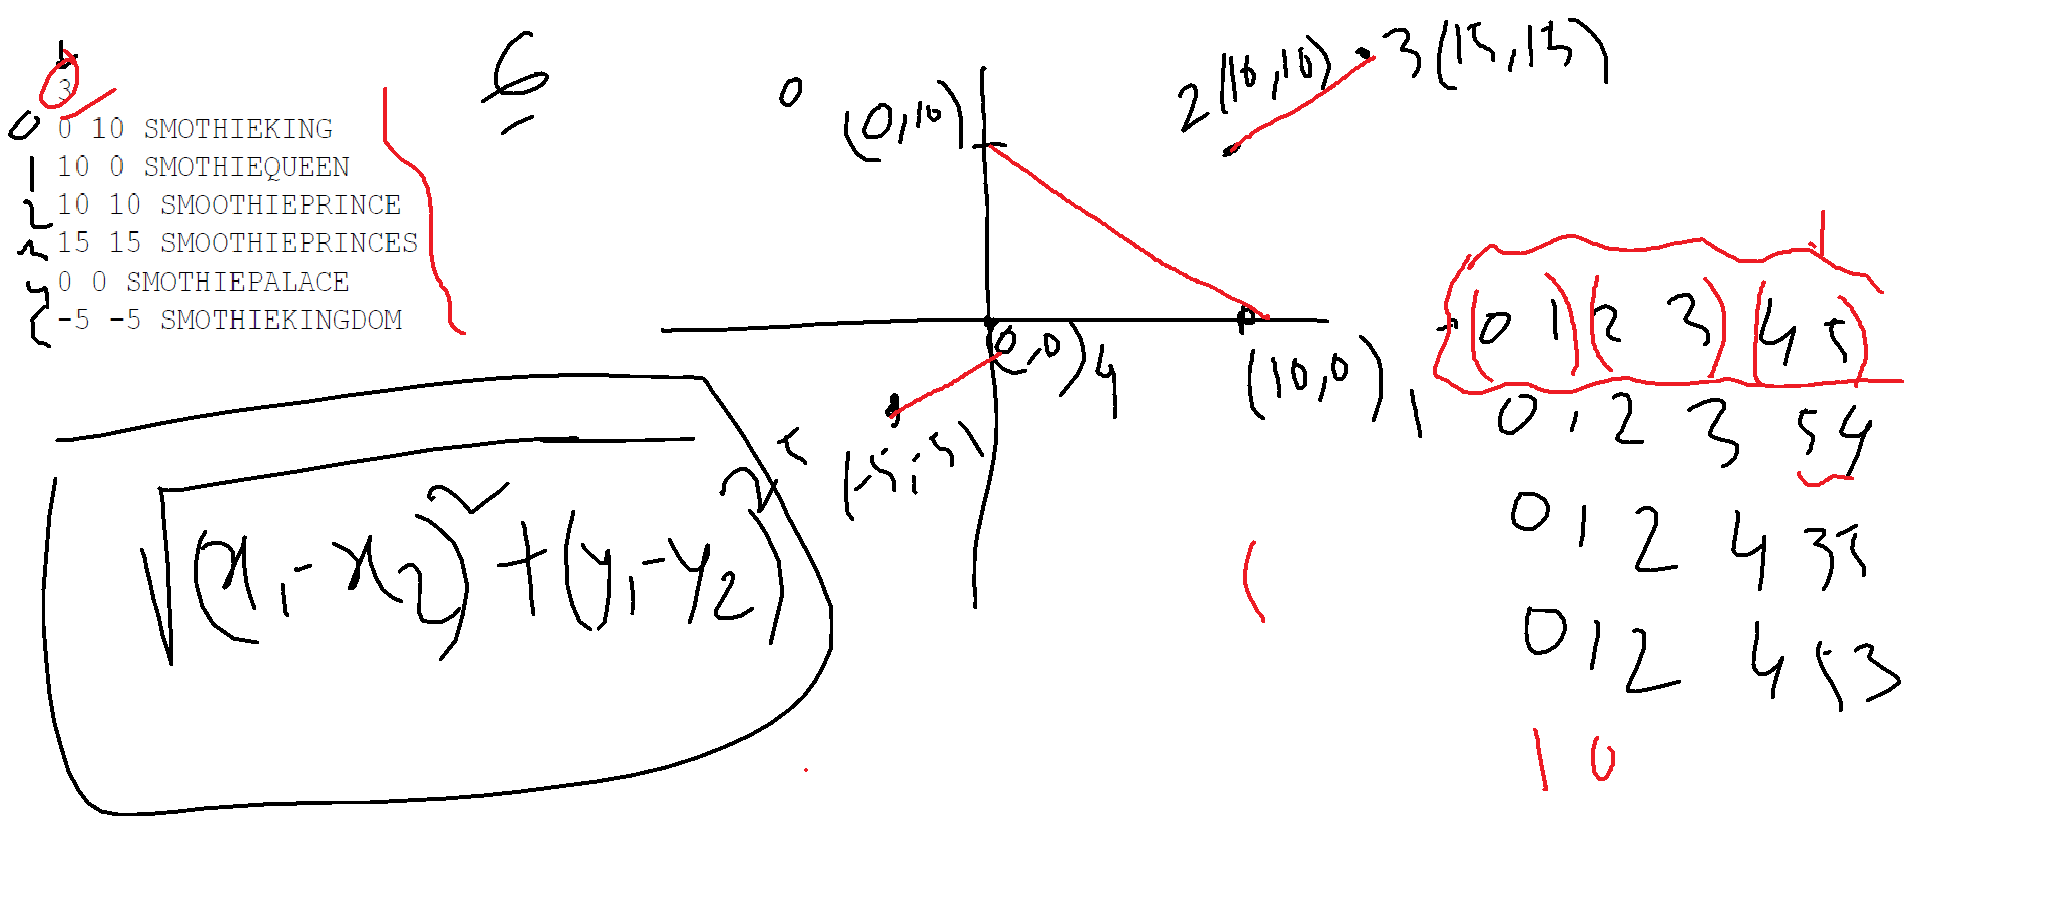 3
0 0 10 SMOTHIEKING
1 10 0 SMOTHIEQUEEN
2 10 10 SMOOTHIEPRINCE
15 15 SMOOTHIEPRINCES
4 0 0 SMOTHIEPALACE
-5 -5 SMOTHIEKINGDOM
6
0 (0,10)
2 (10,10)
3 (15,15)
(0,0) 4
(10,0) 1
(-5,-5)
√(x1-x2)² + (y1-y2)²
(0 1) (2 3) (4 5)
0 1 2 3 5 4
0 1 2 4 3 5
0 1 2 4 5 3
1 0
(